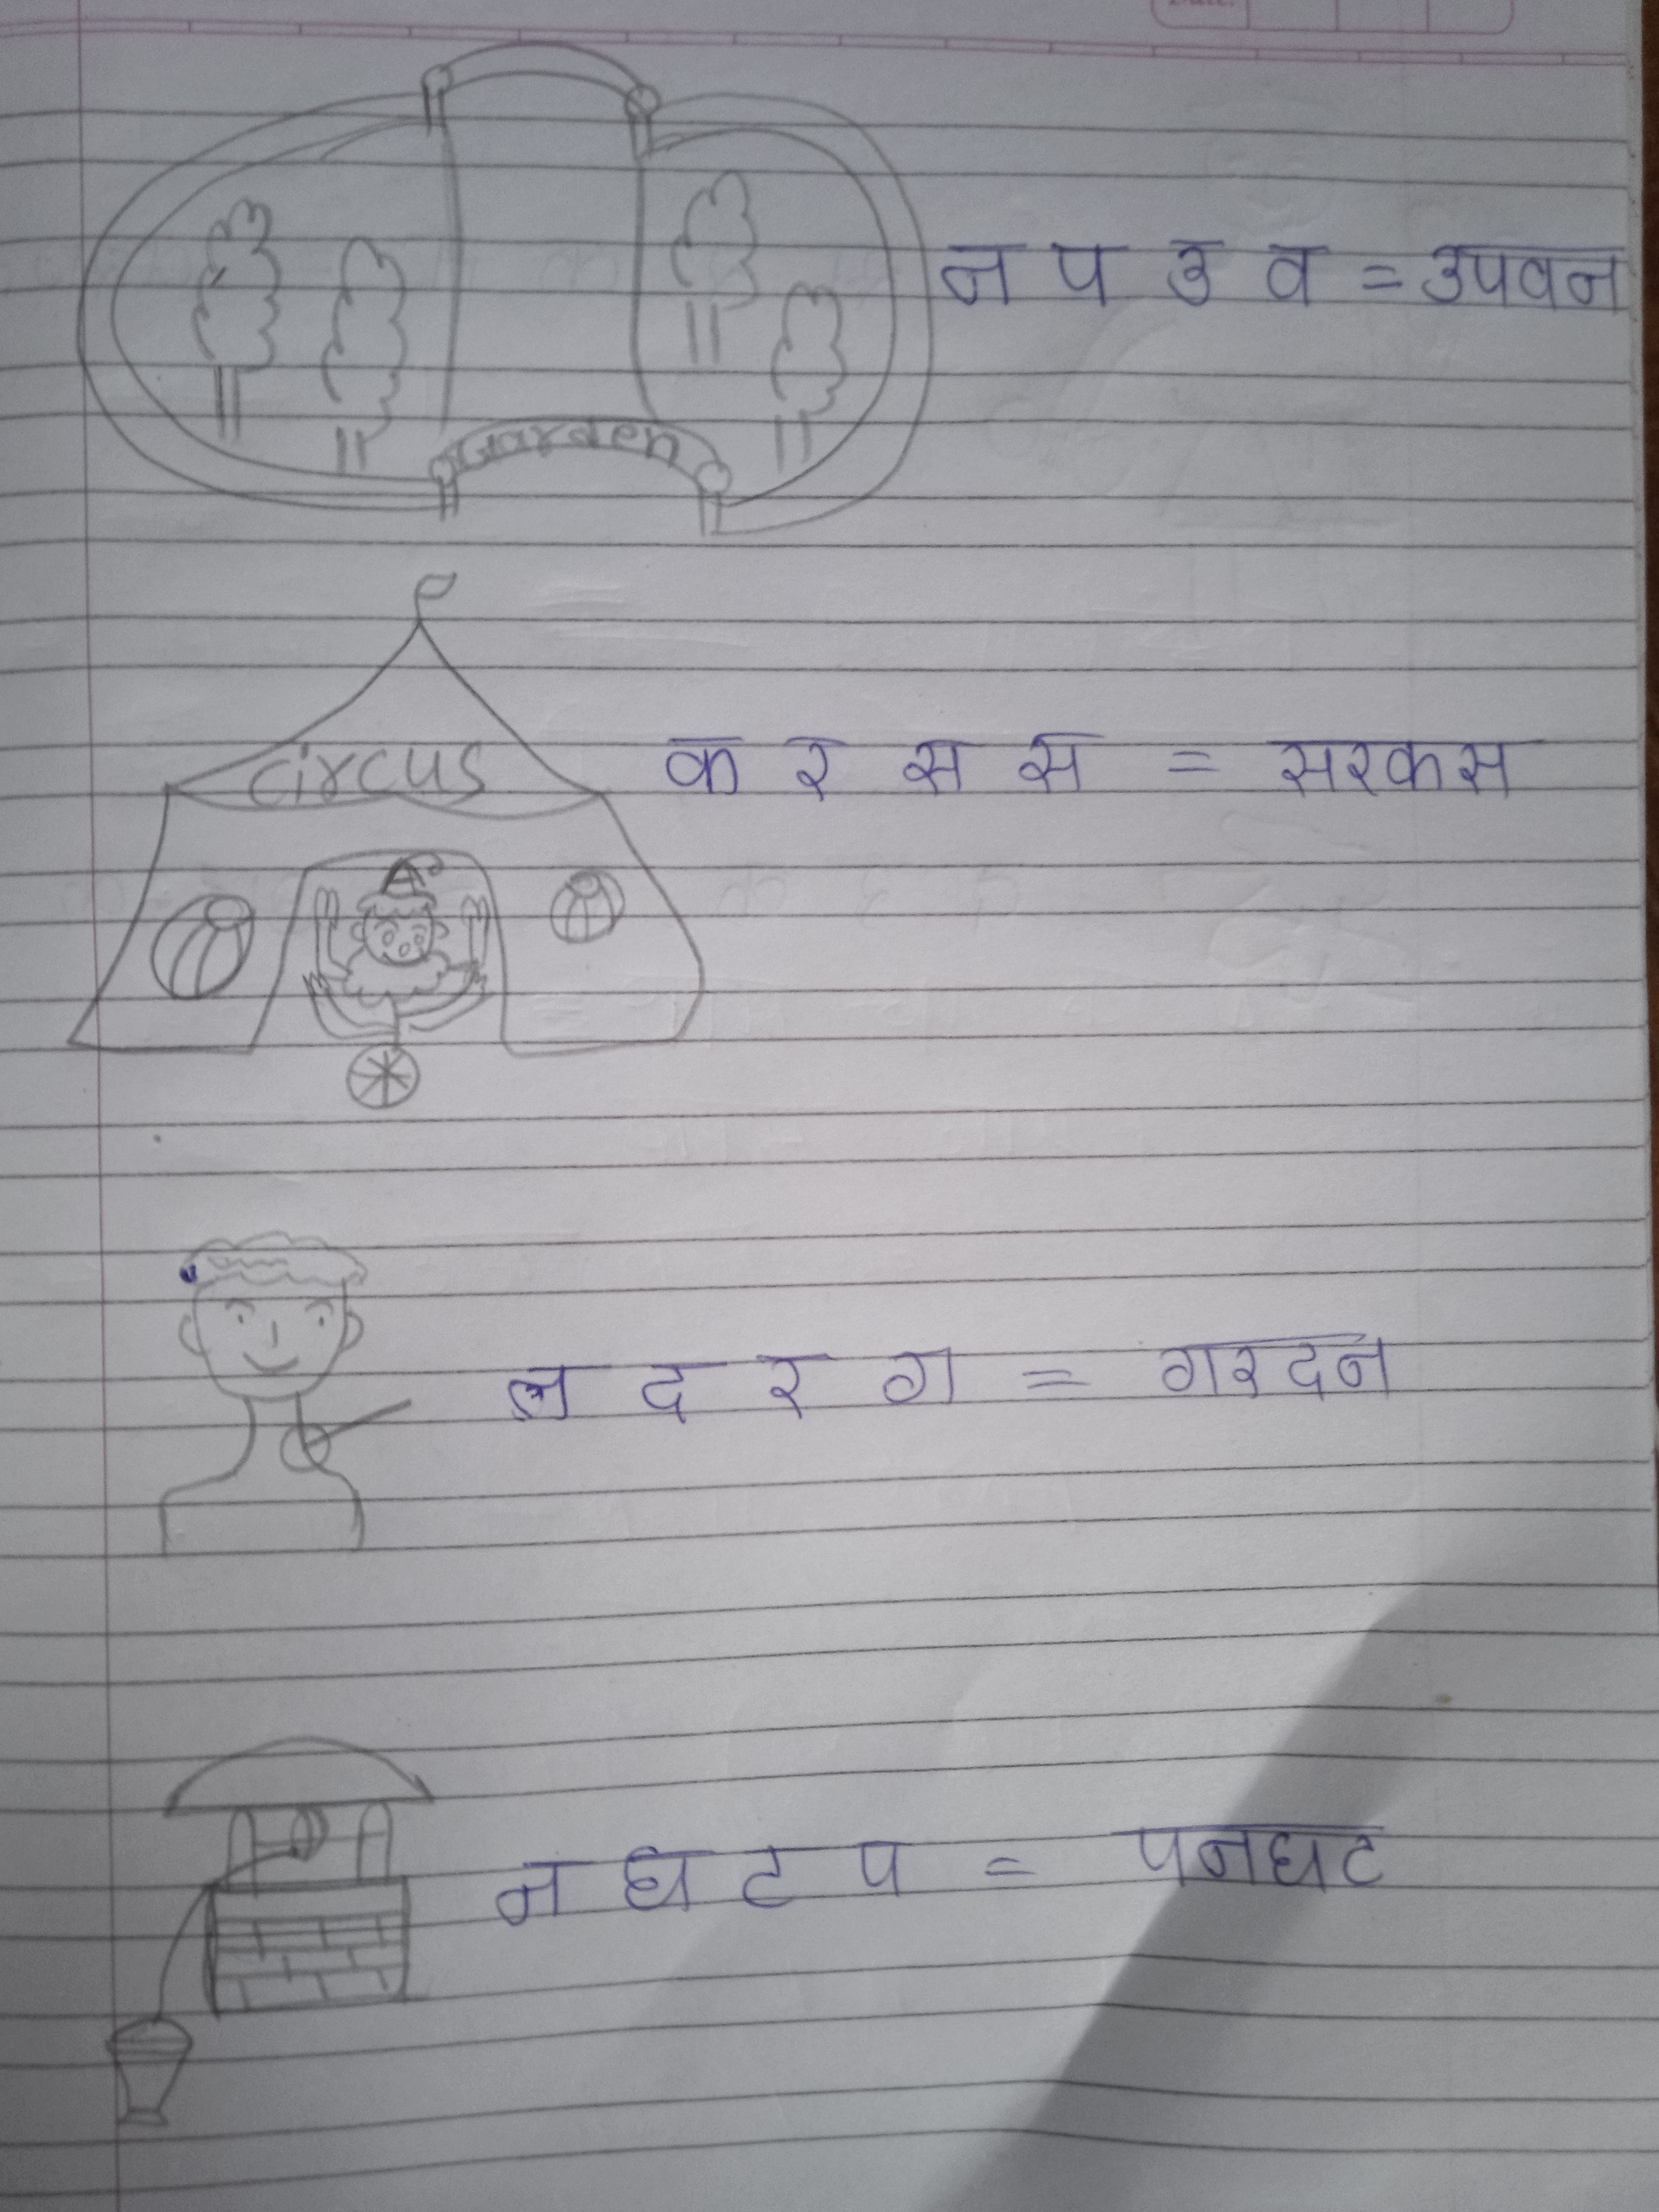 Date:
न प उ व = उपवन
Garden
circus
क र स स = सरकस
न द र ग = गरदन
न घ ट प = पनघट